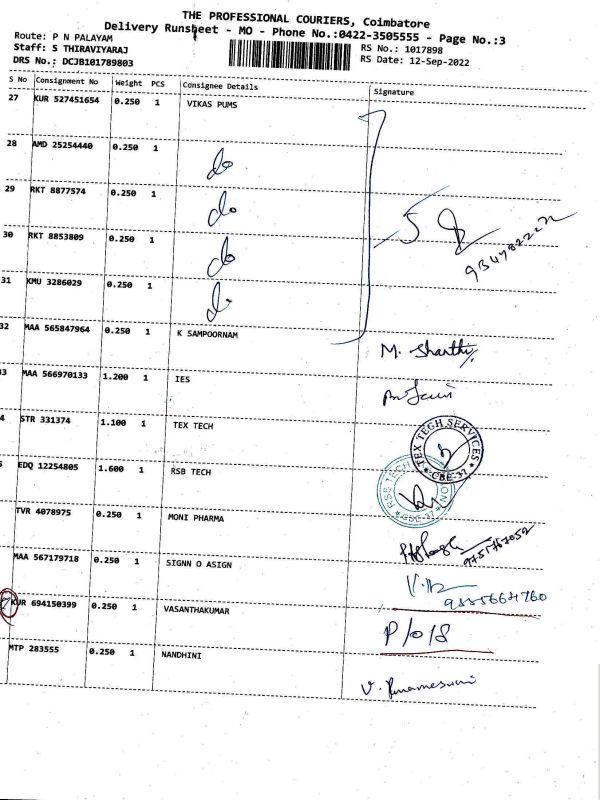 THE PROFESSIONAL COURIERS, Coimbatore
Delivery Runsheet - MO - Phone No.:0422-3505555 - Page No.:3
Route: P N PALAYAM
Staff: S THIRAVIYARAJ
DRS No.: DCJB101789803
RS No.: 1017898
RS Date: 12-Sep-2022
S No Consignment No Weight PCS Consignee Details Signature
27 KUR 527451654 0.250 1 VIKAS PUMS
28 AMD 25254440 0.250 1 do
29 RKT 8877574 0.250 1 do
30 RKT 8853809 0.250 1 do
31 KMU 3286029 0.250 1 do
5
32 MAA 565847964 0.250 1 K SAMPOORNAM M. Shanthi
3 MAA 566970133 1.200 1 IES
4 STR 331374 1.100 1 TEX TECH
TEX TECH SERVICES
CBE-37
5 EDQ 12254805 1.600 1 RSB TECH
RSB TECH
CBE-37
TVR 4078975 0.250 1 MONI PHARMA
MAA 567179718 0.250 1 SIGNN O ASIGN
KUR 694150399 0.250 1 VASANTHAKUMAR P/O/S
MTP 283555 0.250 1 NANDHINI